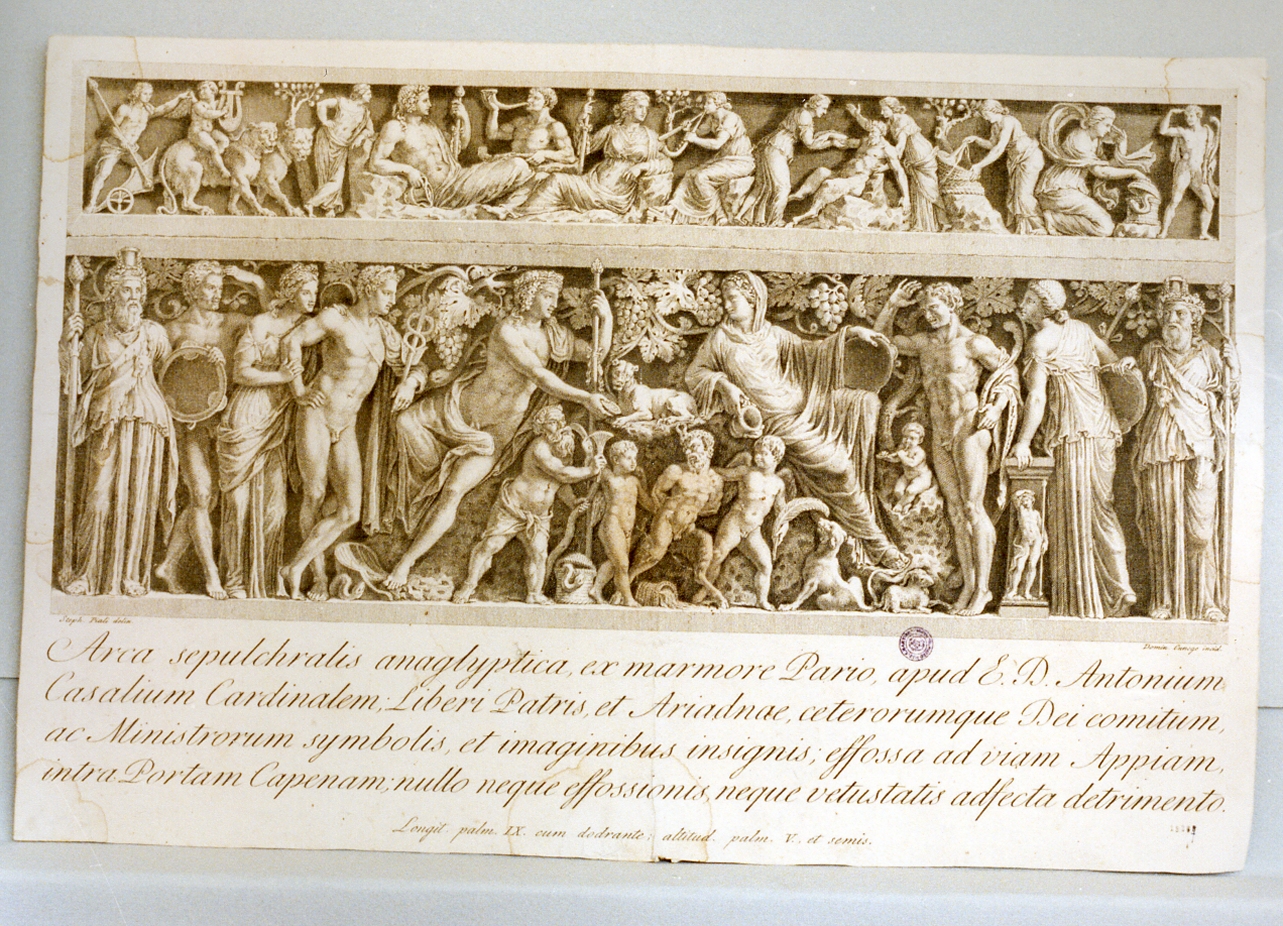 Steph. Piali delin.
Domin. Cunego incid.
Arca sepulchralis anaglyptica, ex marmore Pario, apud E. D. Antonium
Casalium Cardinalem; Liberi Patris, et Ariadnae, ceterorumque Dei comitum,
ac Ministrorum symbolis, et imaginibus insignis; effossa ad viam Appiam,
intra Portam Capenam; nullo neque effossionis, neque vetustatis adfecta detrimento.
Longit. palm. IX. cum dodrante; altitud. palm. V. et semis.